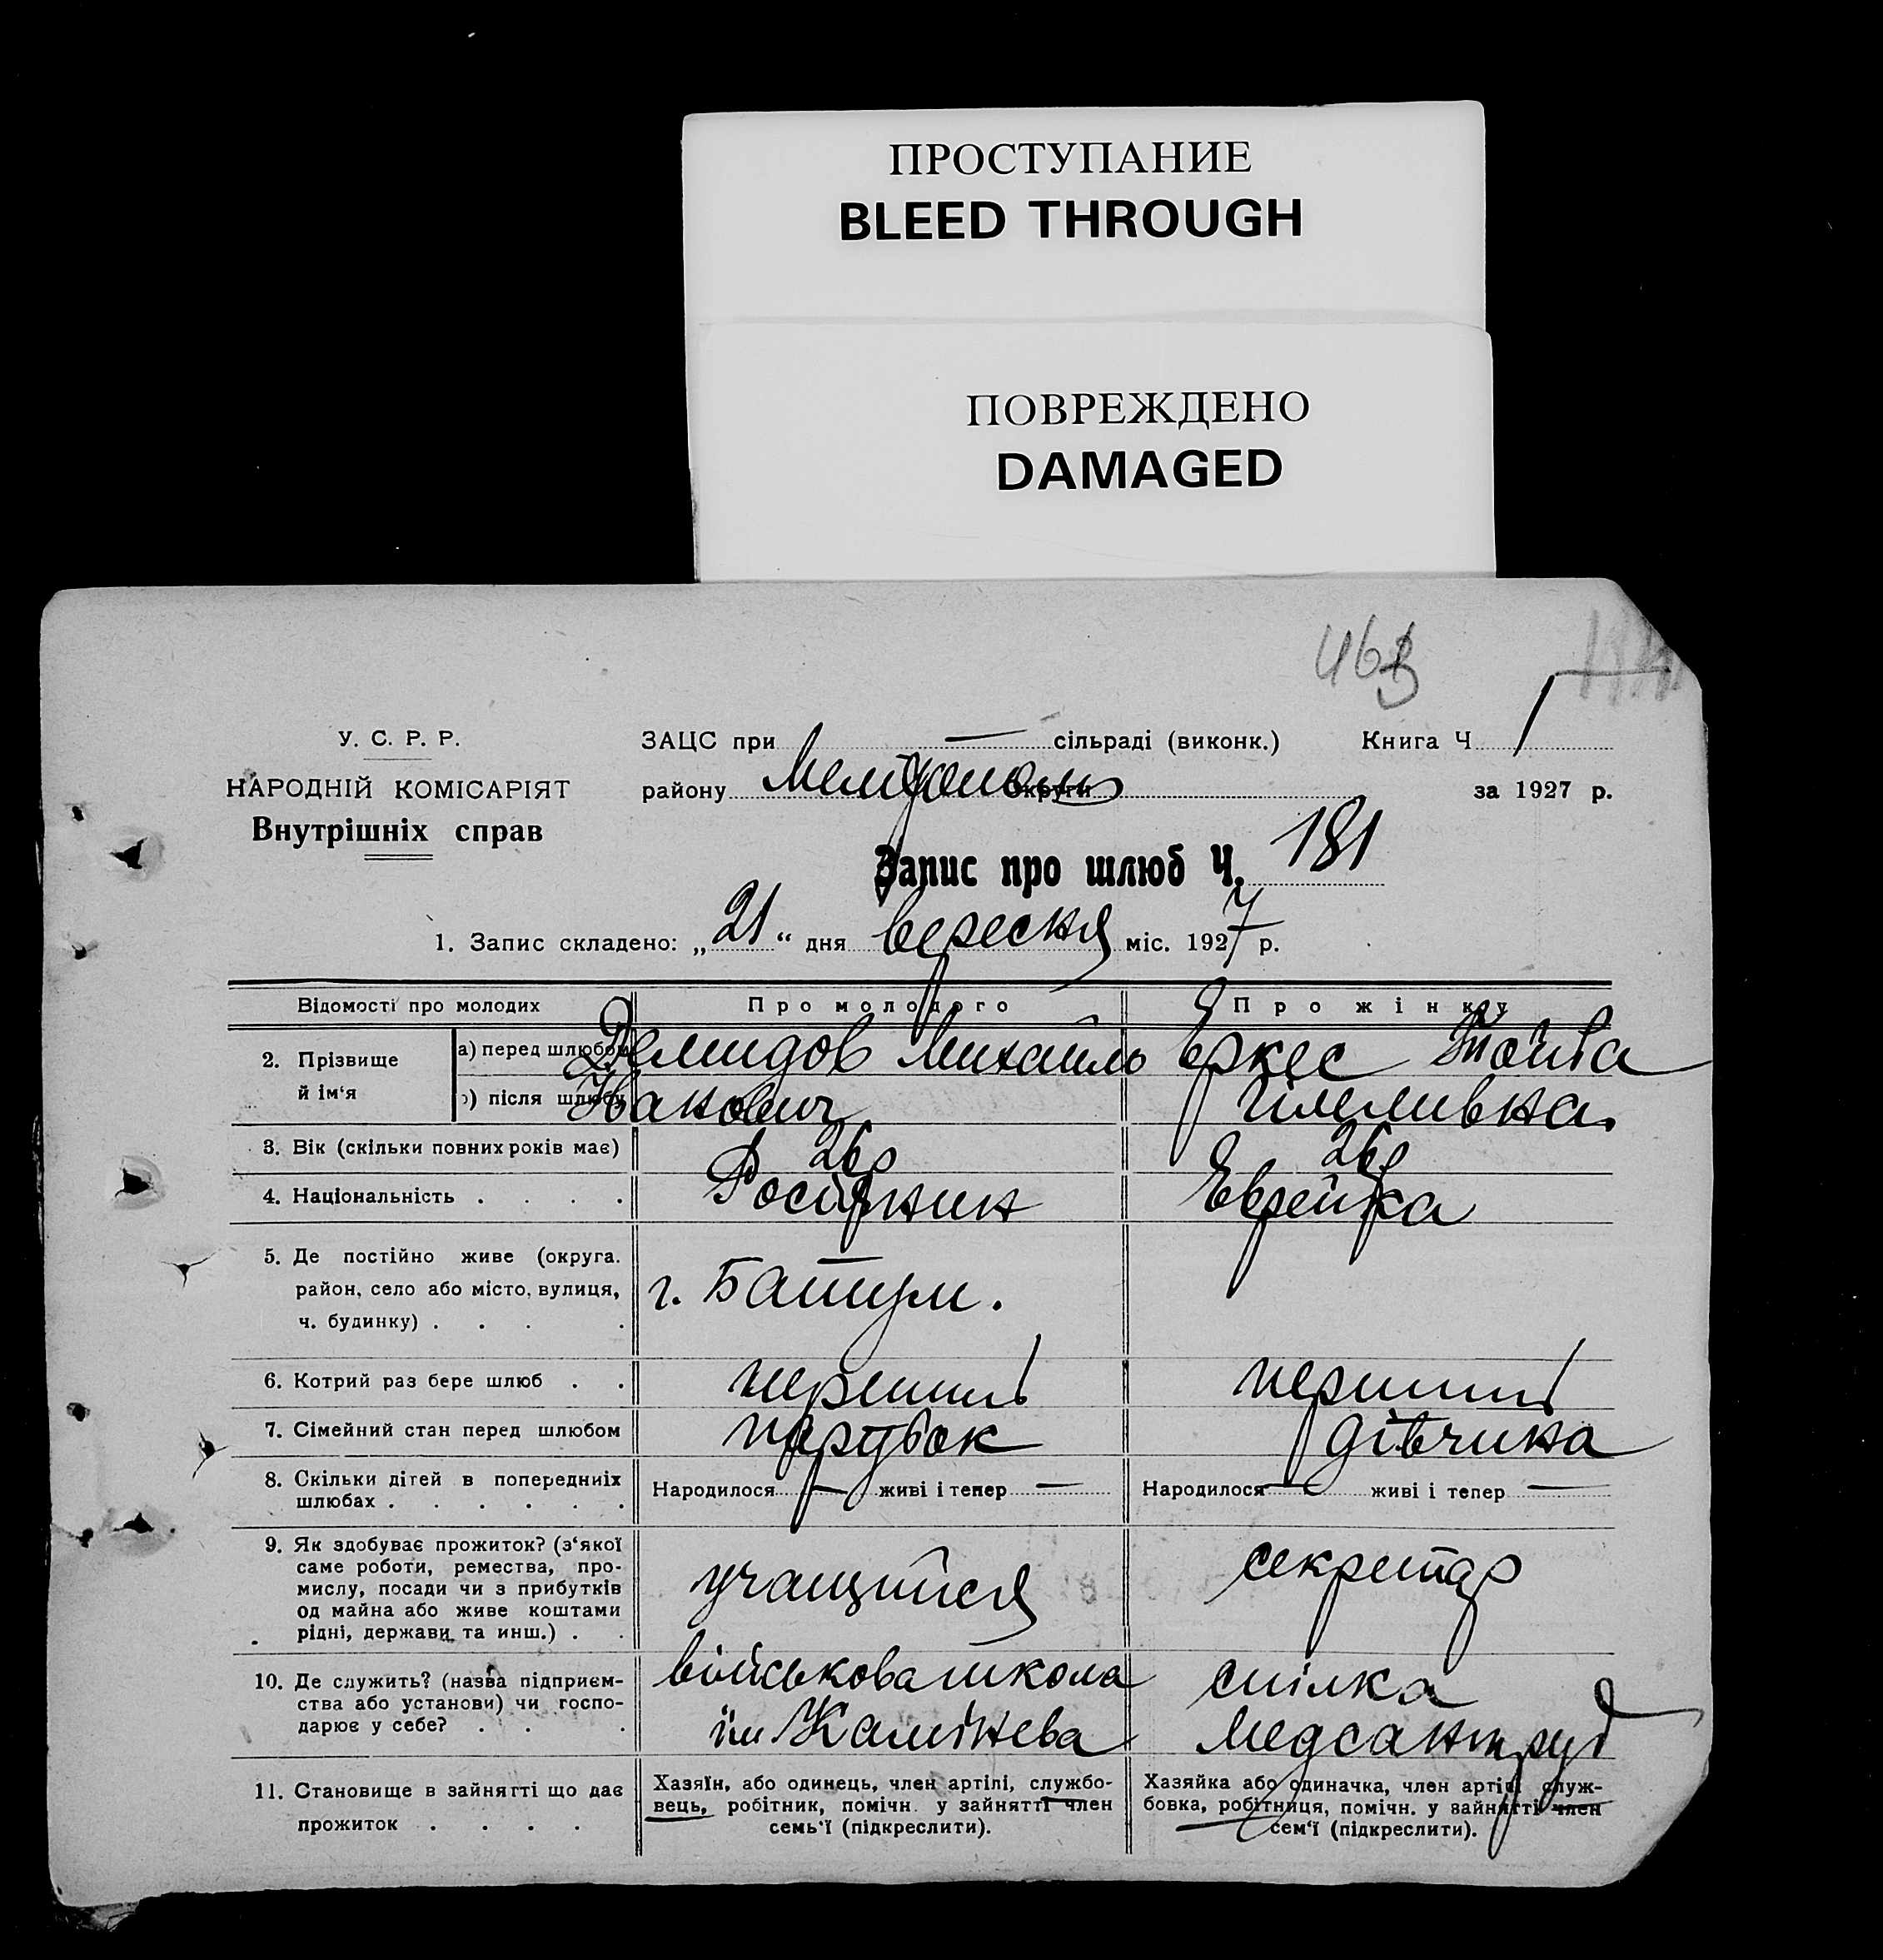 ПРОСТУПАНИЕ
BLEED THROUGH
ПОВРЕЖДЕНО
DAMAGED
463
У. С. Р. Р.
НАРОДНІЙ КОМІСАРІЯТ
Внутрішніх справ
ЗАЦС при — сільраді (виконк.) Книга Ч 1
району округи за 1927 р.
Запис про шлюб Ч. 181
1. Запис складено: „21“ дня вересня міс. 1927 р.
Відомості про молодих Про молодого Про жінку
2. Прізвище й ім‘я
а) перед шлюбом Демидов Михайло Еркес
) після шлюбу Іванович
3. Вік (скільки повних років має) 26р 26р
4. Національність . . . . Росіянин Єврейка
5. Де постійно живе (округа.
район, село або місто, вулиця,
ч. будинку) . . . . г. Батум.
6. Котрий раз бере шлюб . . перший перший
7. Сімейний стан перед шлюбом парубок дівчина
8. Скільки дітей в попередниіх
шлюбах . . . . . . Народилося — живі і тепер — Народилося — живі і тепер —
9. Як здобуває прожиток? (з‘якої
саме роботи, ремества, про-
мислу, посади чи з прибутків
од майна або живе коштами
рідні, держави та инш.) . . учащийся секретар
10. Де служить? (назва підприєм-
ства або установи) чи госпо-
дарює у себе? . . . військова школа
ім Камінева спілка
Медсантруд
11. Становище в зайнятті що дає
прожиток . . . .
Хазяїн, або одинець, член артілі, службо-
вець, робітник, помічн. у зайнятті член
семь‘ї (підкреслити).
Хазяйка або одиначка, член артілі служ-
бовка, робітниця, помічн. у зайнятті член
сем‘ї (підкреслити).